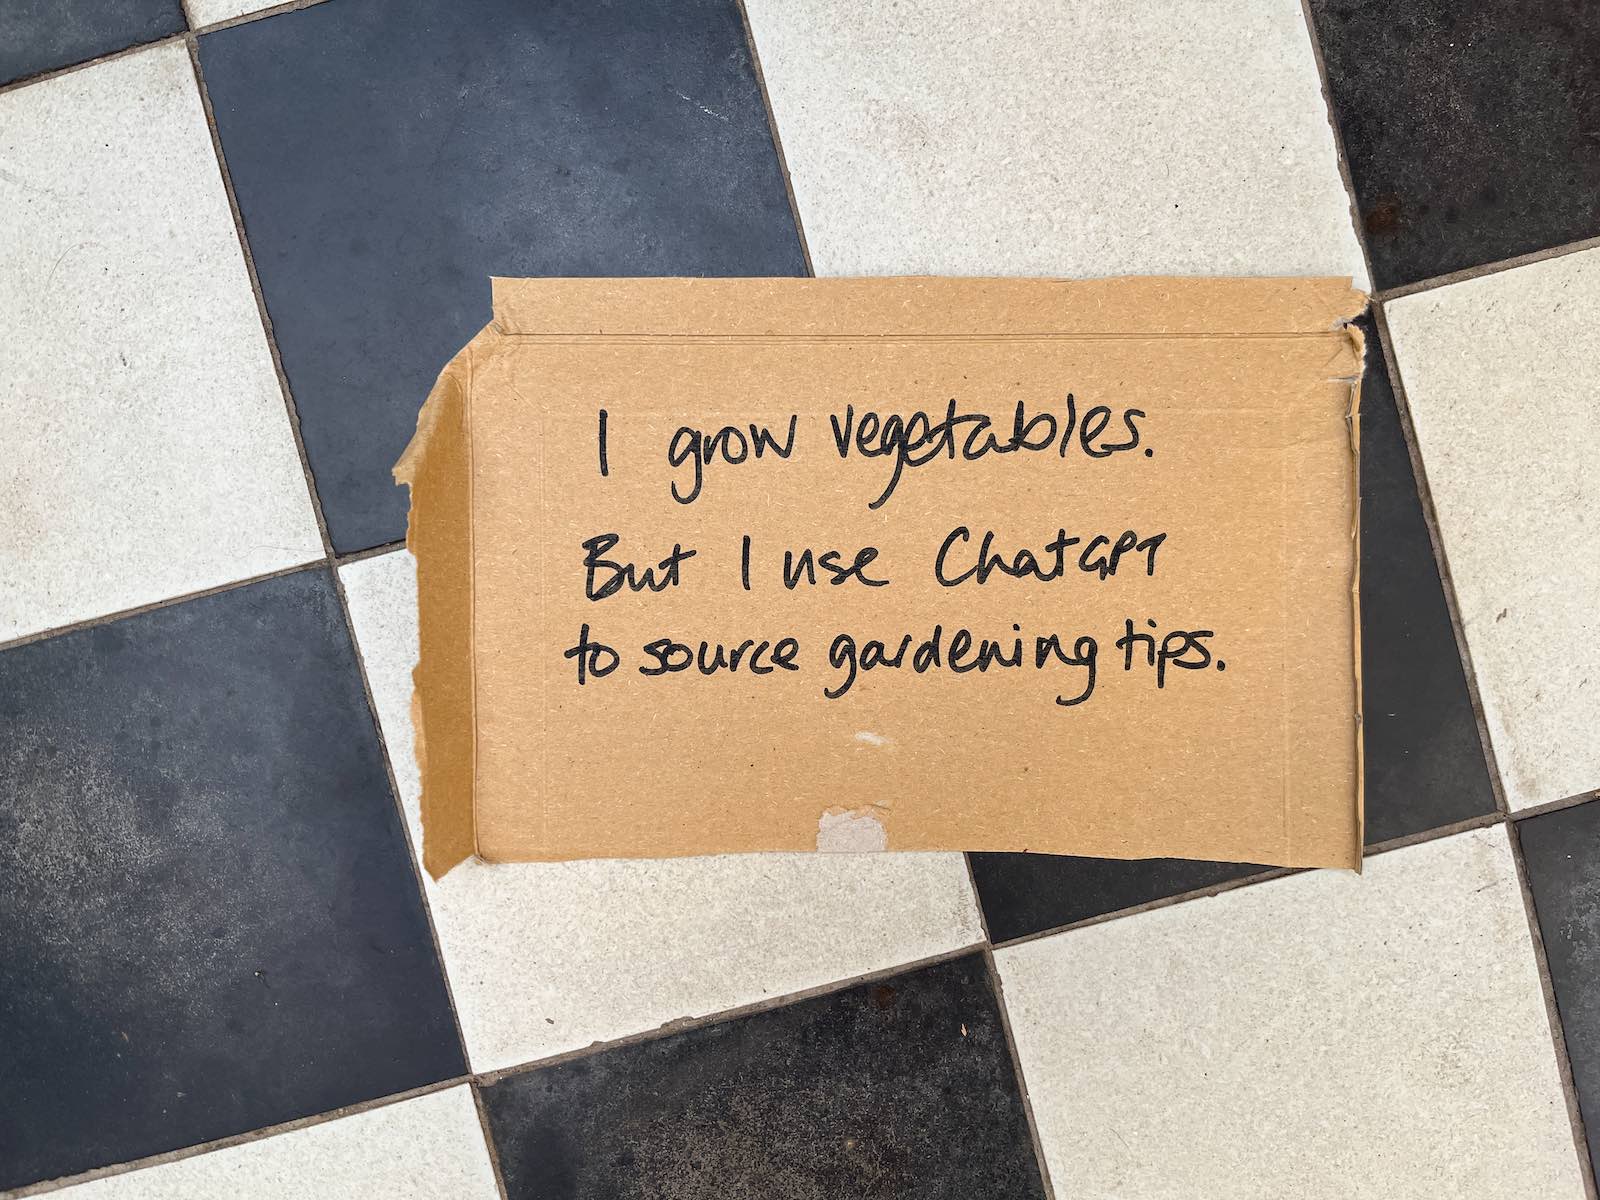 I grow vegetables.
But I use ChatGPT
to source gardening tips.